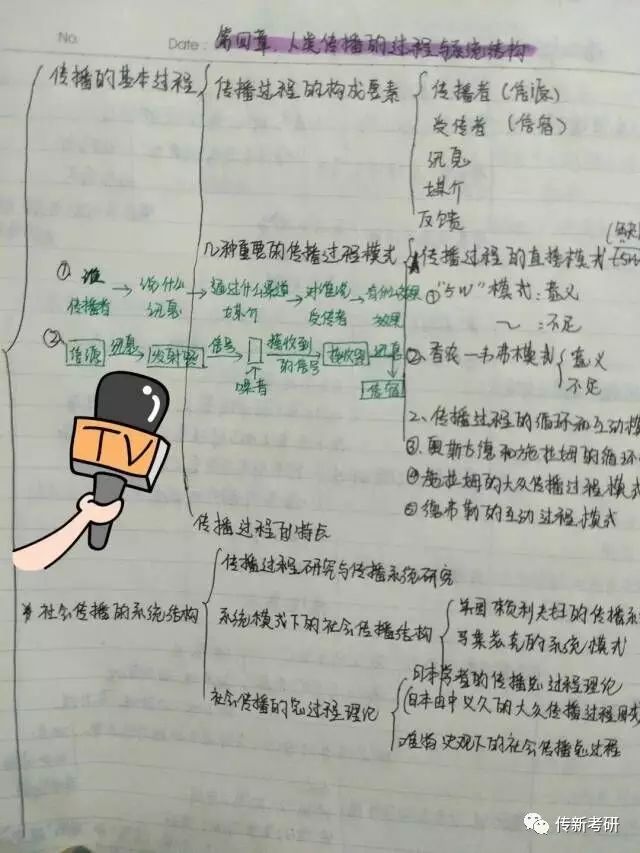 No.
Date: 第四章、人类传播的过程与系统结构
传播的基本过程
传播过程的构成要素
传播者（信源）
受传者（信宿）
讯息
媒介
反馈
几种重要的传播过程模式
传播过程的直播模式
①"5W"模式：意义
～：不足
① 谁 → 说什么 → 通过什么渠道 → 对谁说
传播者 讯息 媒介 受传者 效果
② 信源 讯息 发射器 信号 接收到的信号 接收器 讯息 信宿
噪音
②、香农一韦弗模式 意义
不足
2、传播过程的循环和互动模
③奥斯古德和施拉姆的循环
④施拉姆的大众传播过程模式
⑤德弗勒的互动过程模式
TV
传播过程的特点
社会传播的系统结构
传播过程研究与传播系统研究
系统模式下的社会传播结构
赖利夫妇的传播系
马莱兹克的系统模式
社会传播的总过程理论
日本学者的传播总过程理论
(日本田中义久的大众传播过程图式
唯物史观下的社会传播总过程
传新考研